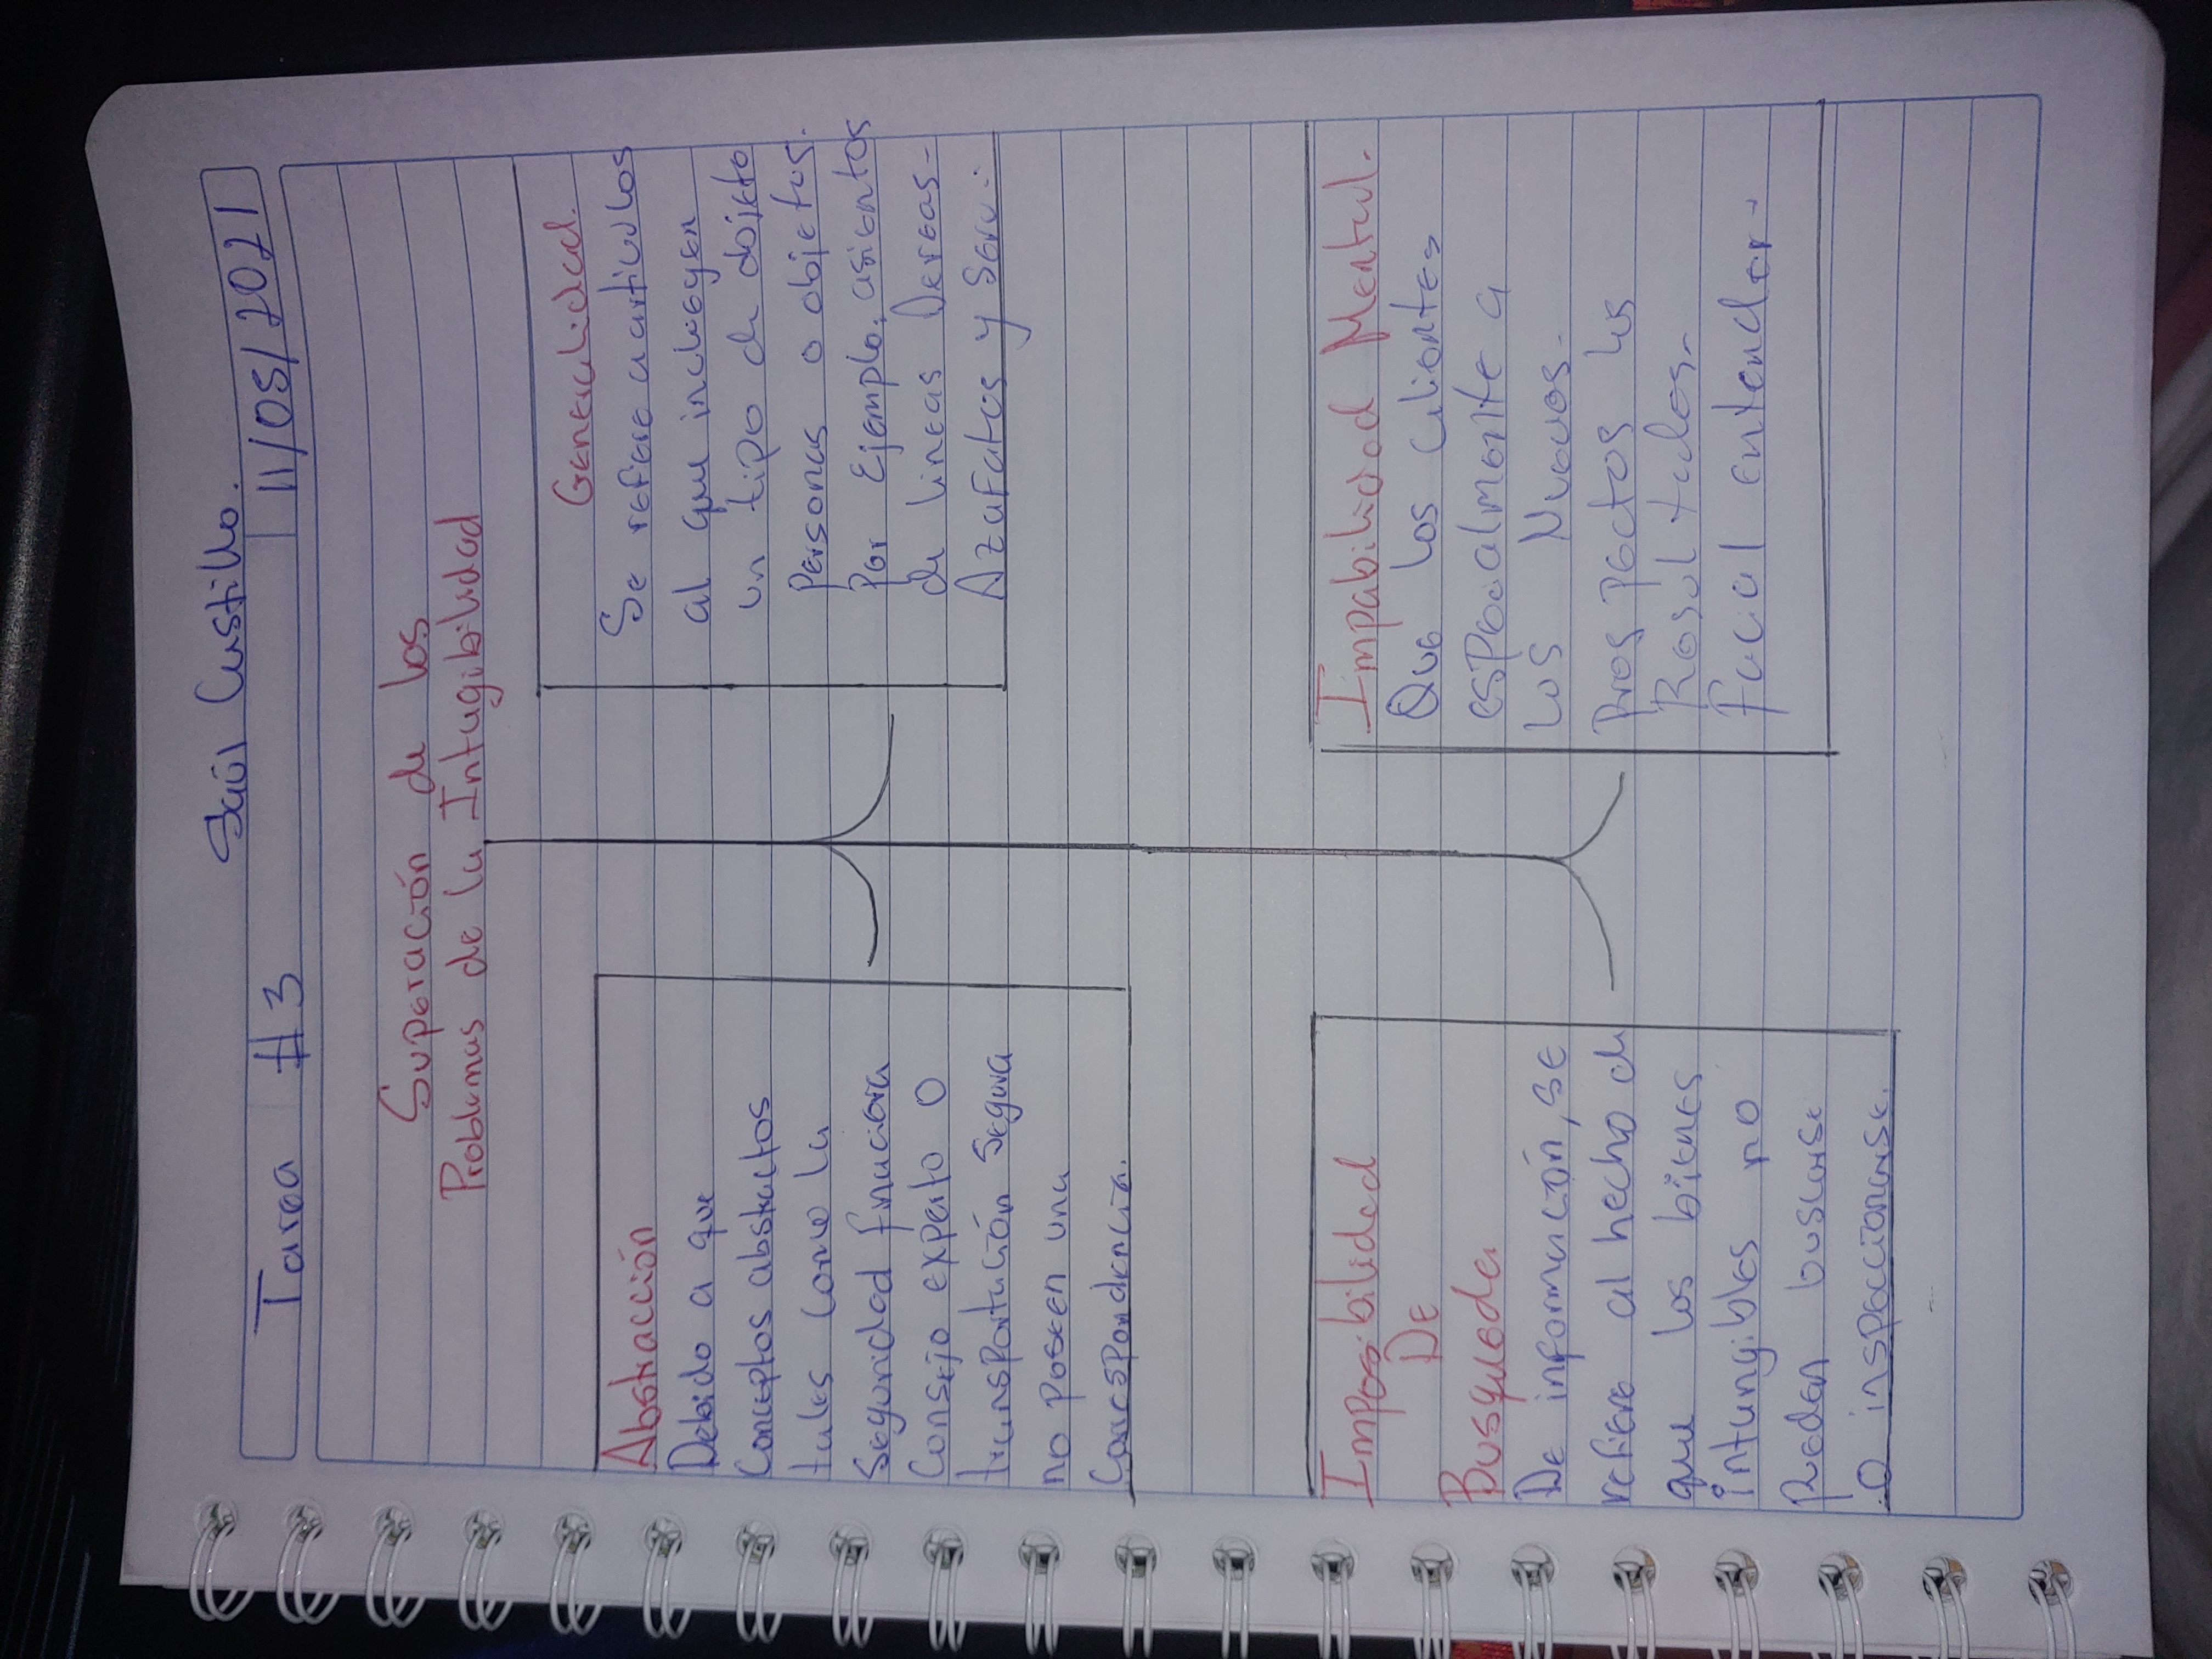 Saúl Castillo.
Tarea #3
11/05/2021
Superación de los
Problemas de la Intagibilidad
Abstracción
Debido a que
Conceptos abstractos
tales como la
Seguridad finaciera
Consejo experto o
transportación segura
no poseen una
Correspondencia.
Generalidad.
Se refiere a articulos
al que incluogen
un tipo de dojeto
Personas o objetos.
Por Ejemplo, asientos
de lineas Aereas-
Azafatas y Serv.:
Imposibilidad
De
Busqueda
De información, se
refiere al hecho de
que los bienes
intangibles no
Pueden buscarse
o inspeccionarse.
Impabilidad Mental.
Que los clientes
especialmente a
los Nuevos.
Prospectos los
Resultados-
Facial entender.